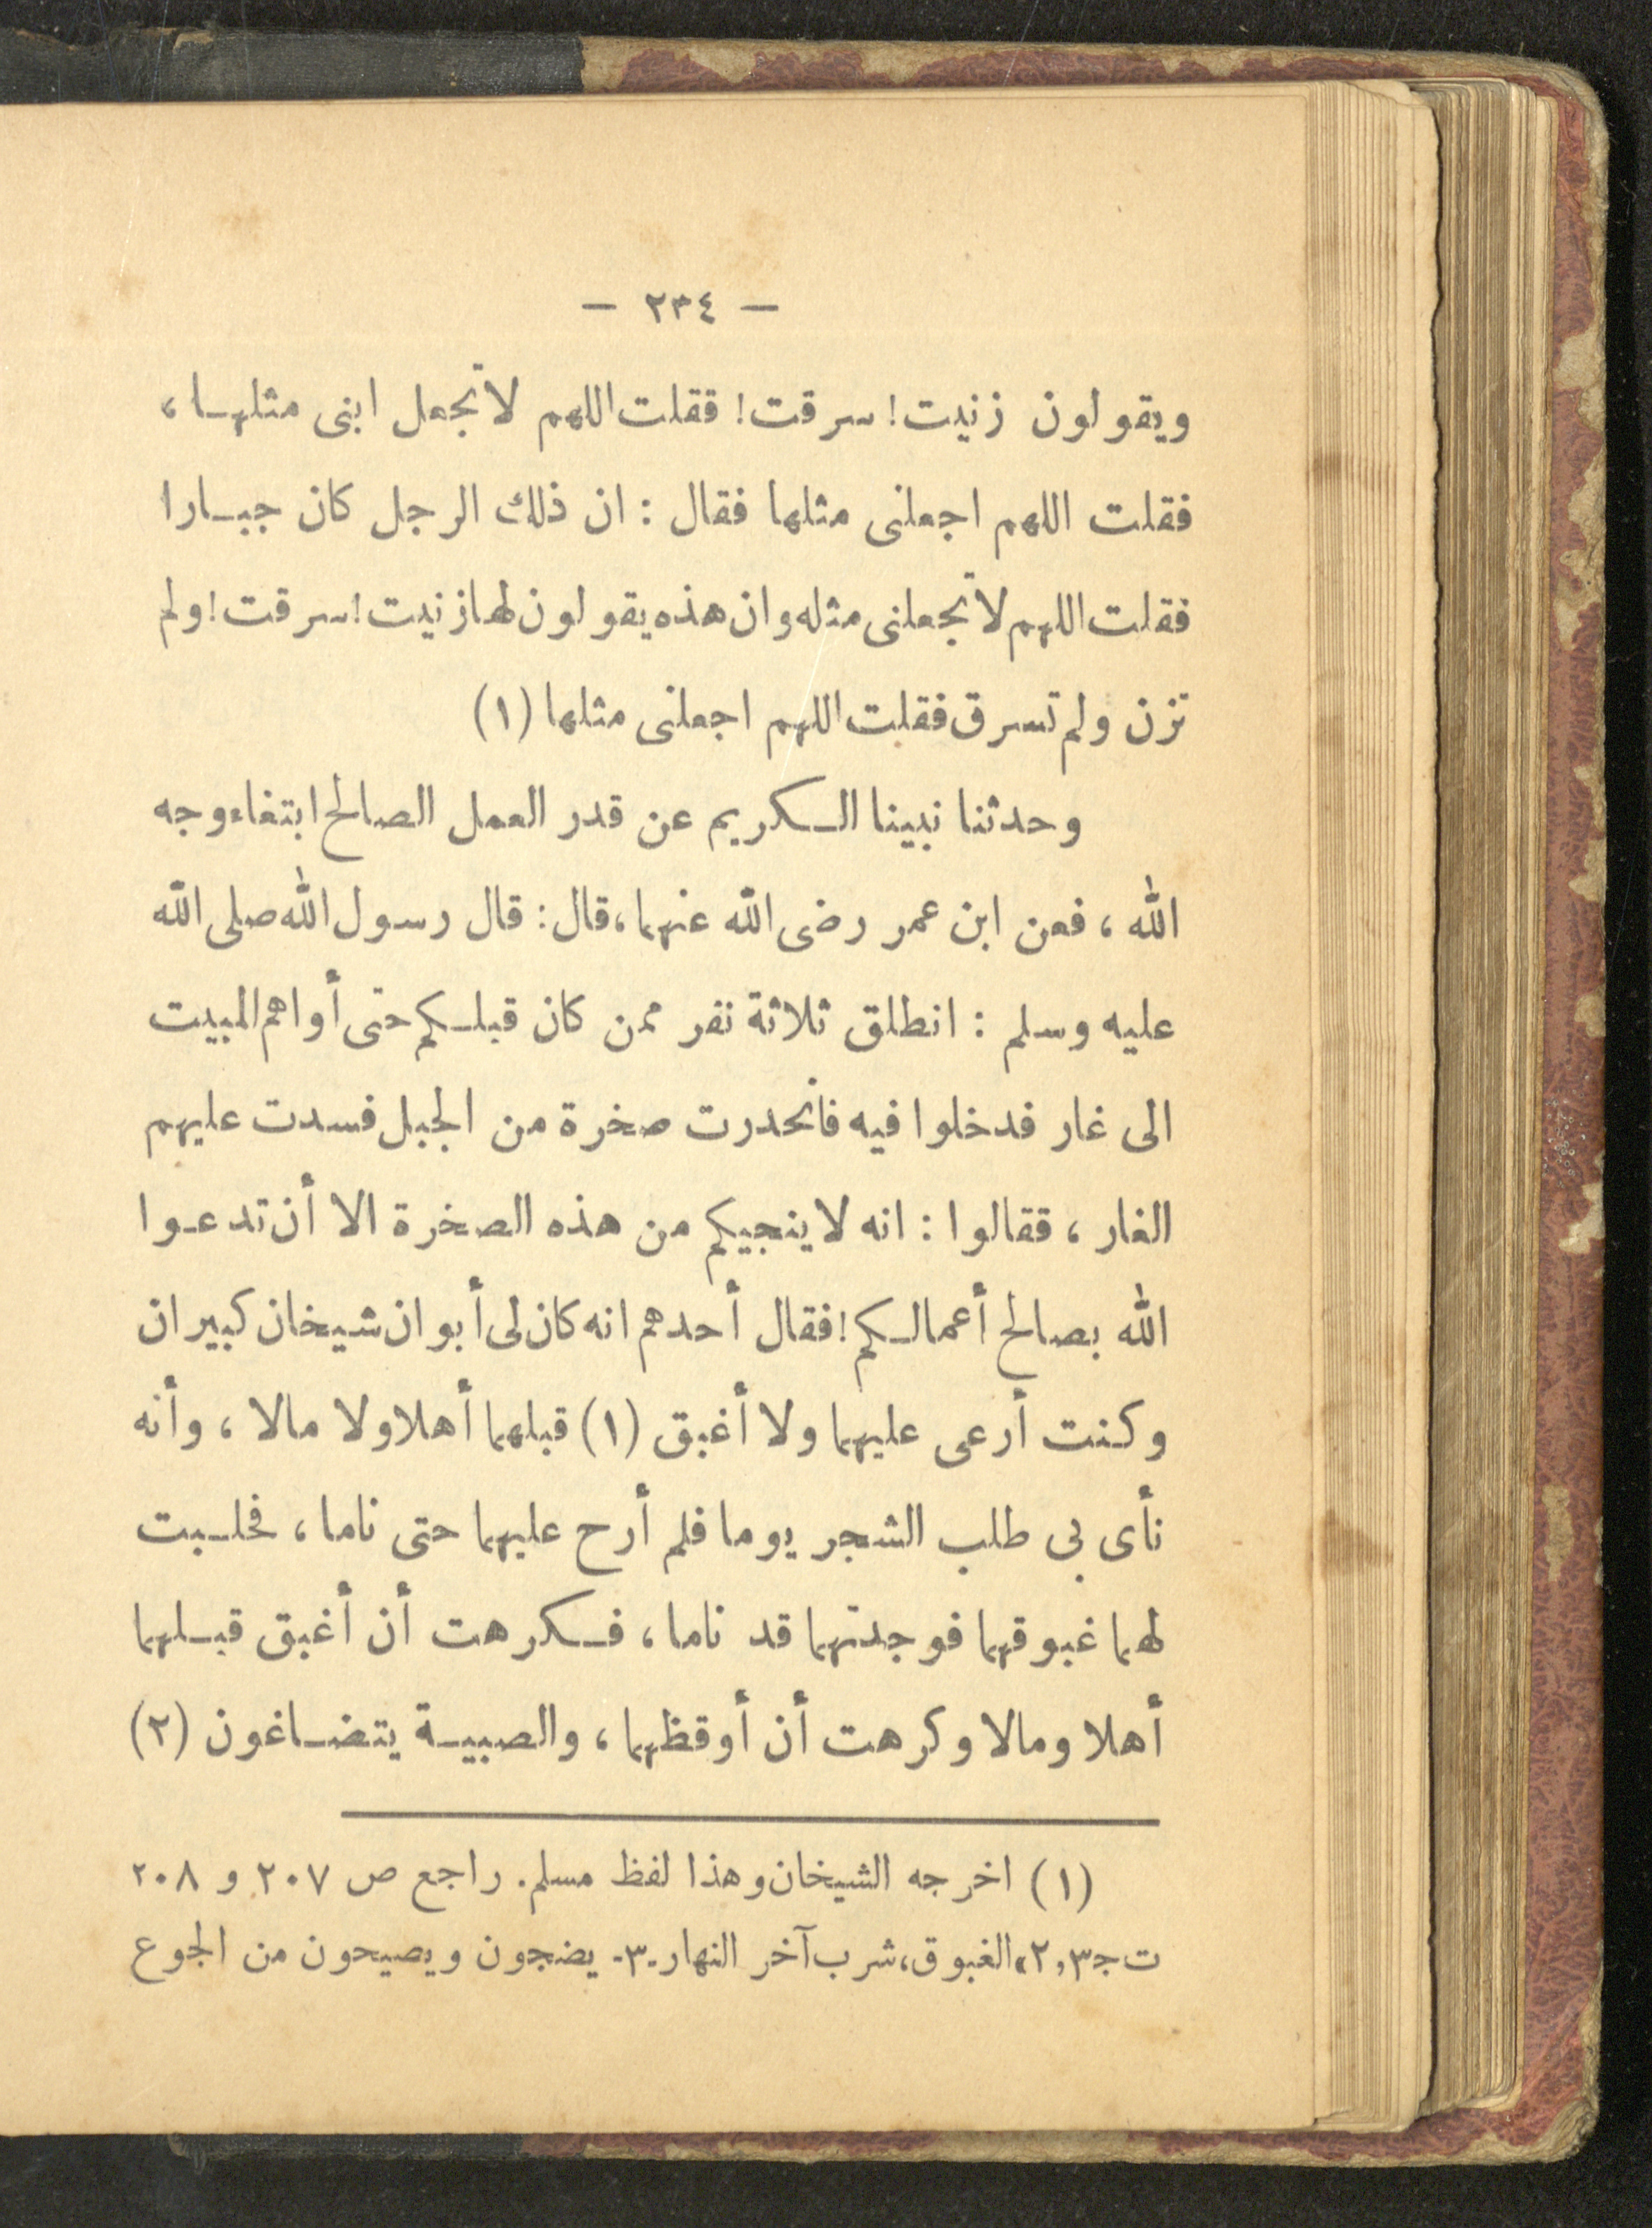 — ٢٣٤ —
ويقولون زنيت! سرقت! فقلت اللهم لا تجعل ابنى مثلها ،
فقلت اللهم اجعلنى مثلها فقال : ان ذلك الرجل كان جبارا
فقلت اللهم لا تجعلنى مثله وان هذه يقولون لها زنيت! سرقت! ولم
تزن ولم تسرق فقلت اللهم اجعلنى مثلها (١)
وحدثنا نبينا الكريم عن قدر العمل الصالح ابتغاء وجه
الله ، فعن ابن عمر رضى الله عنهما، قال: قال رسول الله صلى الله
عليه وسلم : انطلق ثلاثة نفر ممن كان قبلكم حتى أواهم المبيت
الى غار فدخلوا فيه فانحدرت صخرة من الجبل فسدت عليهم
الغار ، فقالوا : انه لا ينجيكم من هذه الصخرة الا أن تدعوا
الله بصالح أعمالكم! فقال أحدهم انه كان لى أبوان شيخان كبيران
وكنت أرعى عليهما ولا أغبق (١) قبلهما أهلا ولا مالا ، وأنه
نأى بى طلب الشجر يوما فلم أرح عليهما حتى ناما ، فحلبت
لهما غبوقهما فوجدتهما قد ناما ، فكرهت أن أغبق قبلهما
أهلا ومالا وكرهت أن أوقظهما ، والصبية يتضاغون (٢)
(١) اخرجه الشيخان وهذا لفظ مسلم. راجع ص ٢٠٧ و ٢٠٨
ت ج ٣، ٢» الغبوق، شرب آخر النهار -٣- يضجون ويصيحون من الجوع